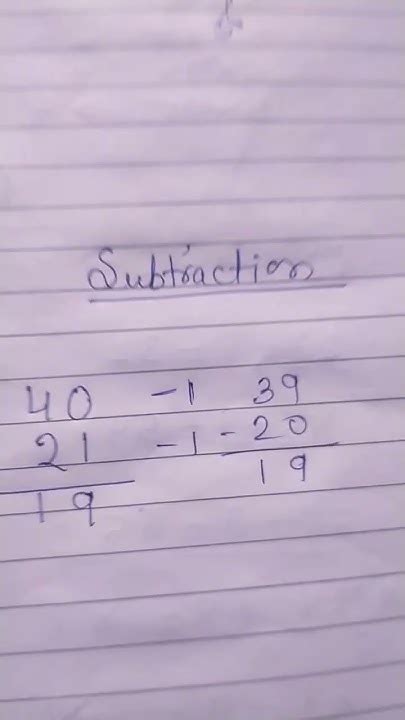 Subtraction
40 -1 39
21 -1 -20
19 19